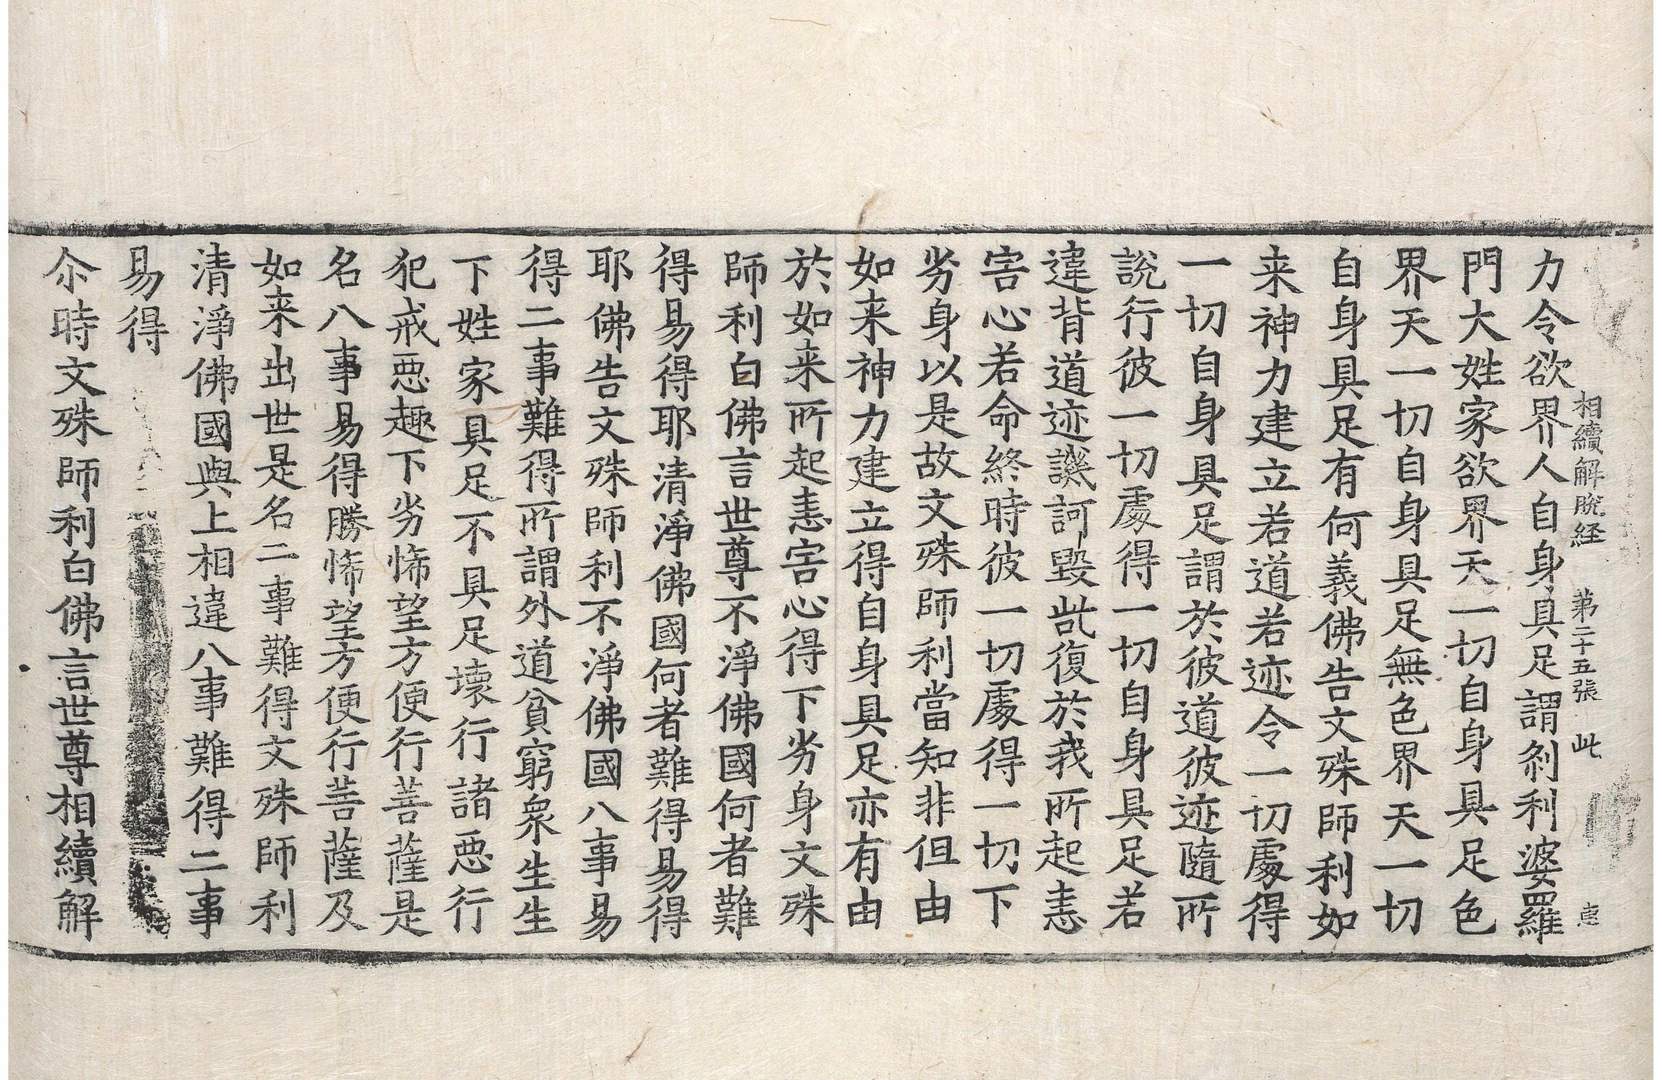 相續解脫経 第二十五張 此
力令欲界人自身具足謂刹利婆羅
門大姓家欲界天一切自身具足色
界天一切自身具足無色界天一切
自身具足有何義佛告文殊師利如
来神力建立若道若迹令一切處得
一切自身具足謂於彼道彼迹隨所
說行彼一切處得一切自身具足若
違背道迹譏訶毀呰復於我所起恚
害心若命終時彼一切處得一切下
劣身以是故文殊師利當知非但由
如来神力建立得自身具足亦有由
於如来所起恚害心得下劣身文殊
師利白佛言世尊不淨佛國何者難
得易得耶清淨佛國何者難得易得
耶佛告文殊師利不淨佛國八事易
得二事難得所謂外道貧窮衆生生
下姓家具足不具足壞行諸惡行
犯戒惡趣下劣悕望方便行菩薩是
名八事易得勝悕望方便行菩薩及
如来出世是名二事難得文殊師利
清淨佛國與上相違八事難得二事
易得
尒時文殊師利白佛言世尊相續解